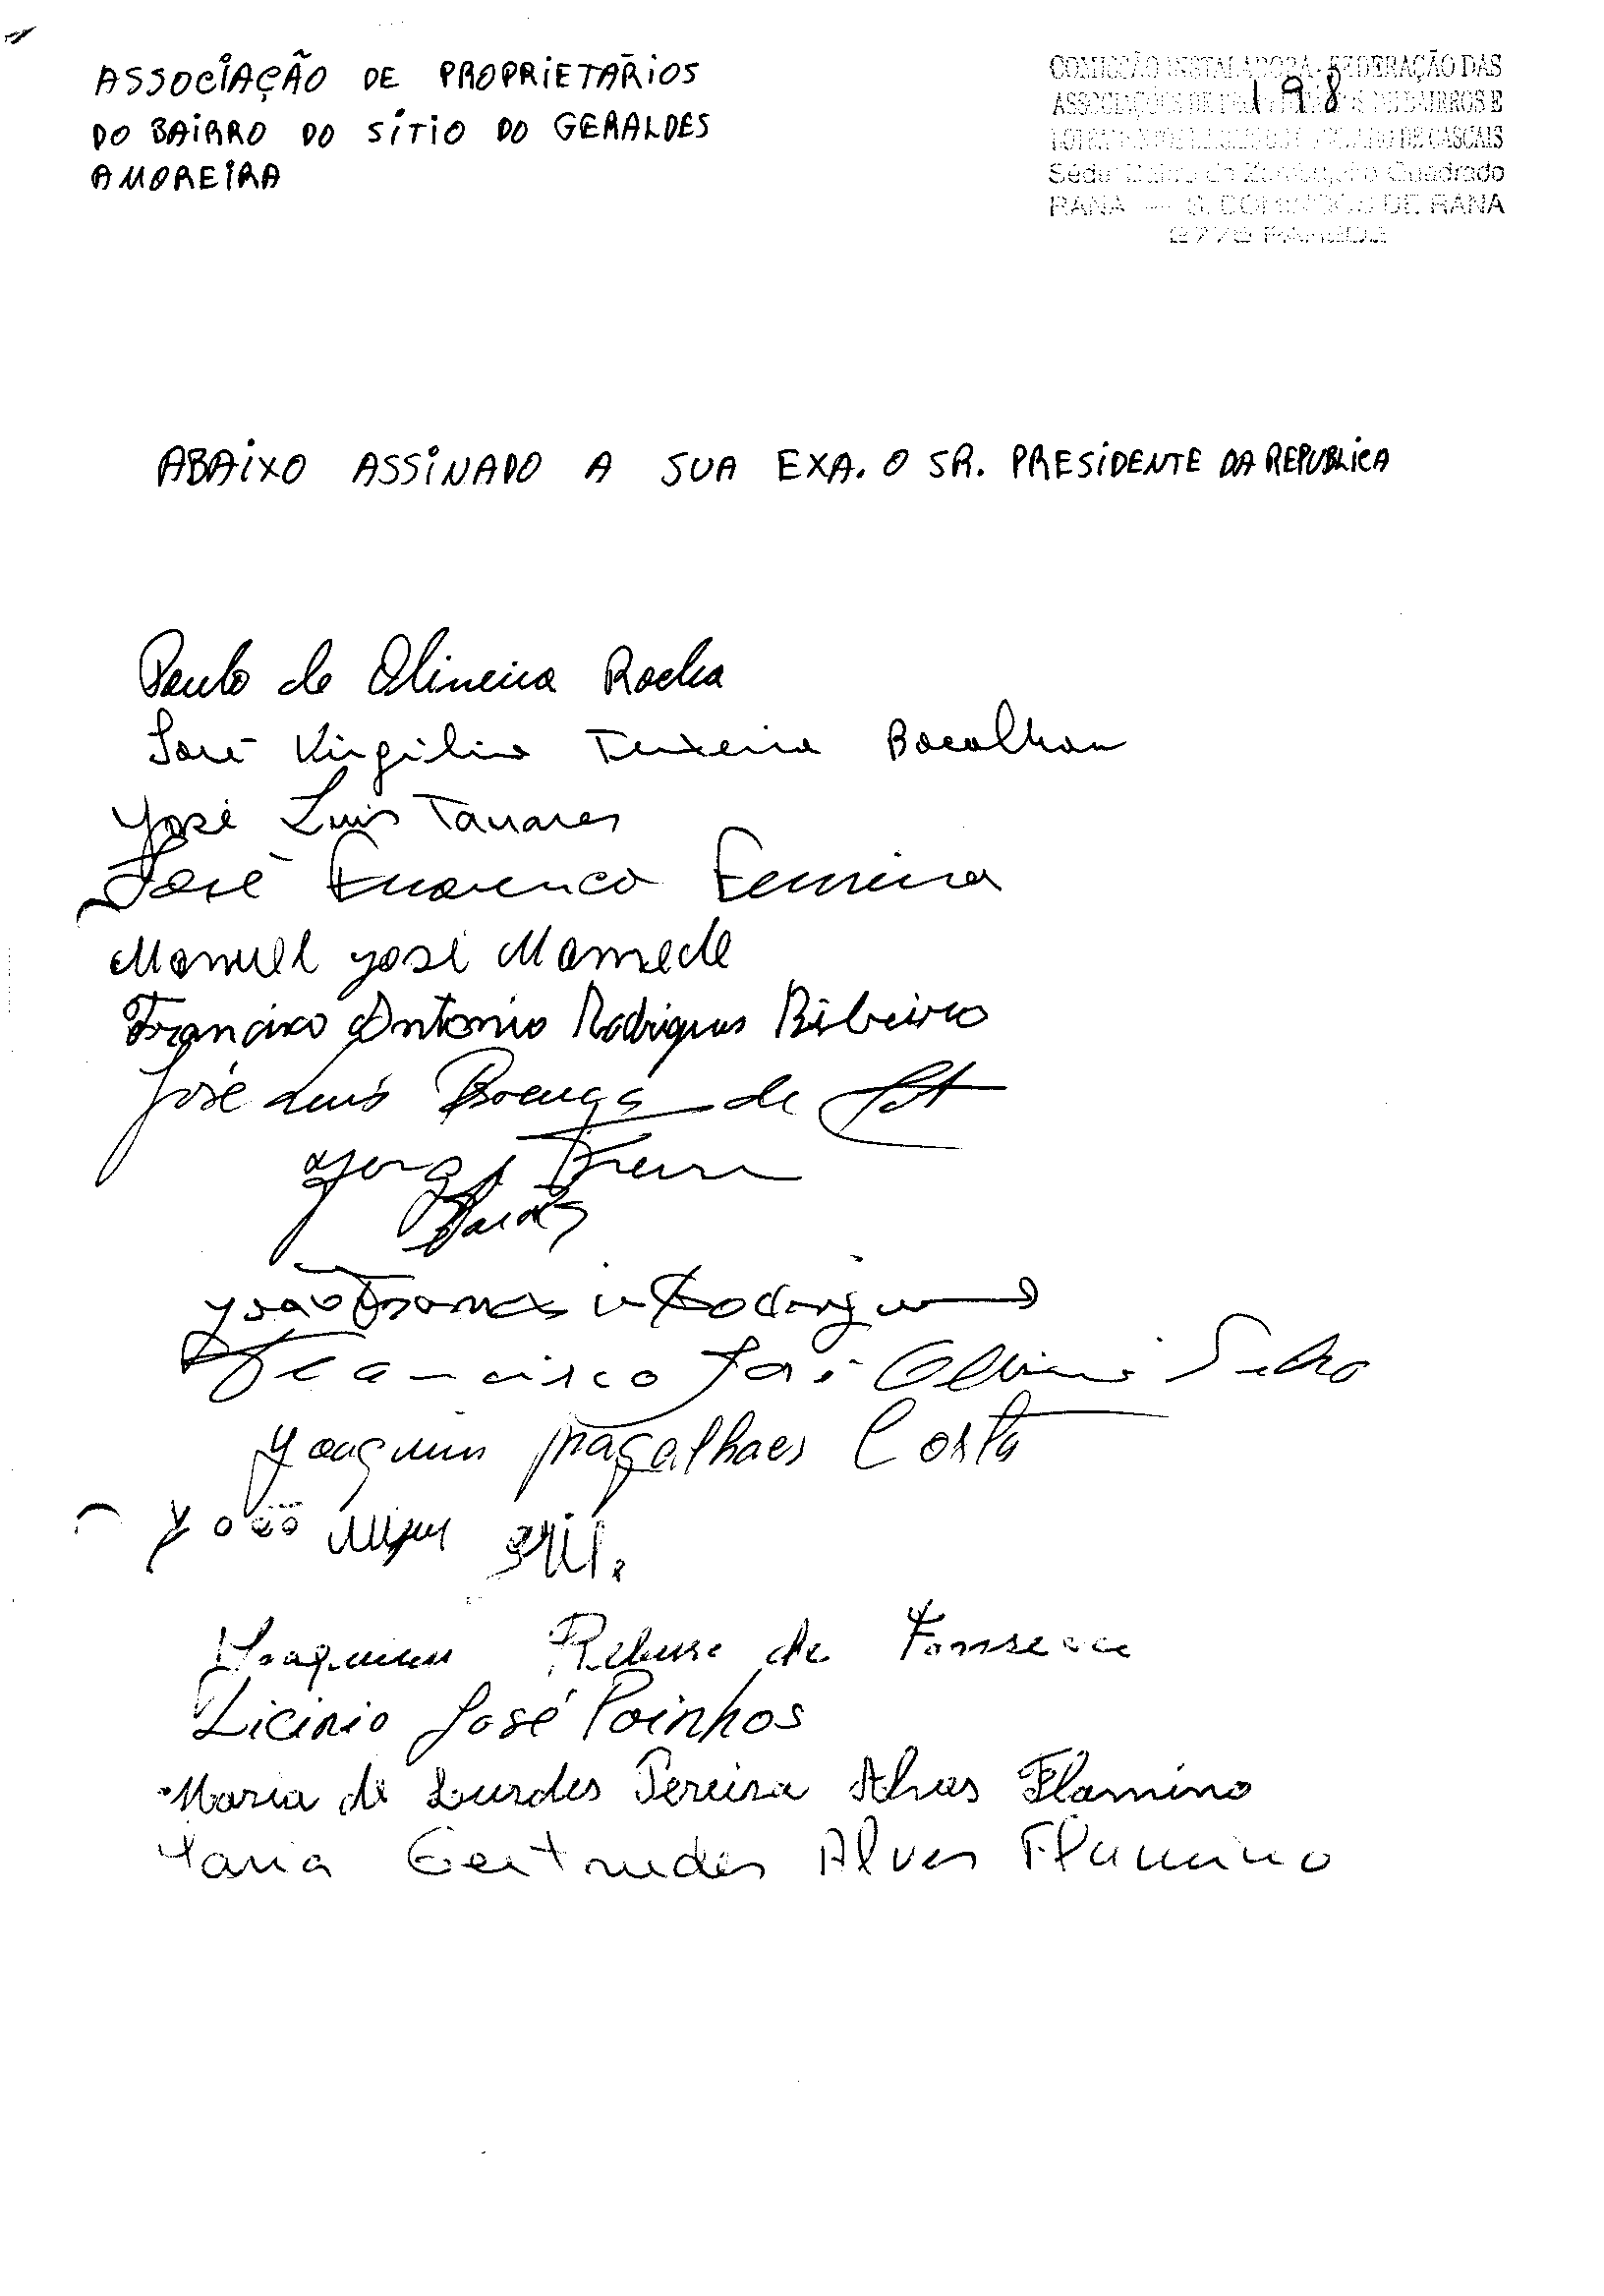 ASSOCIAÇÃO DE PROPRIETÁRIOS
DO BAIRRO DO SÍTIO DO GERALDES
AMOREIRA
COMISSÃO INSTALADORA - FEDERAÇÃO DAS
198
ASSOCIAÇÕES DE BAIRROS E
DE CASCAIS
Séde: Quadrado
RANA — S. DOMINGOS DE RANA
2775 PAREDE
ABAIXO ASSINADO A SUA EXA. O SR. PRESIDENTE DA REPUBLICA
Paulo de Oliveira Rocha
José Virgilio Teixeira Bacalhau
José Luis Tavares
José Ferreira
Manuel José Mamede
Francisco Antonio Rodrigues Ribeiro
José Luís de
Jorge
João Francisco Rodrigues
Francisco José
Joaquim Magalhaes Costa
João
Joaquim de Fonseca
Licinio José Poinhos
Maria de Lurdes Pereira Alves Flamino
Maria Gertrudes Alves Flamino